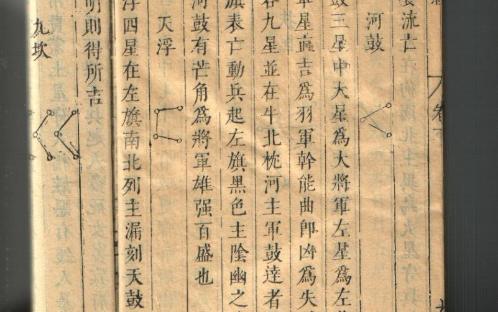 卷
流亡
河鼓
鼓三星中大星為大將軍左星為左
軍星直吉為羽軍幹能曲即凶為失
九星並在牛北枕河主軍鼓達者
旗表亡動兵起左旗黑色主陰幽之
河鼓有芒角為將軍雄强百盛也
天浮
浮四星在左旗南北列主漏刻天鼓
明則得所吉
九坎